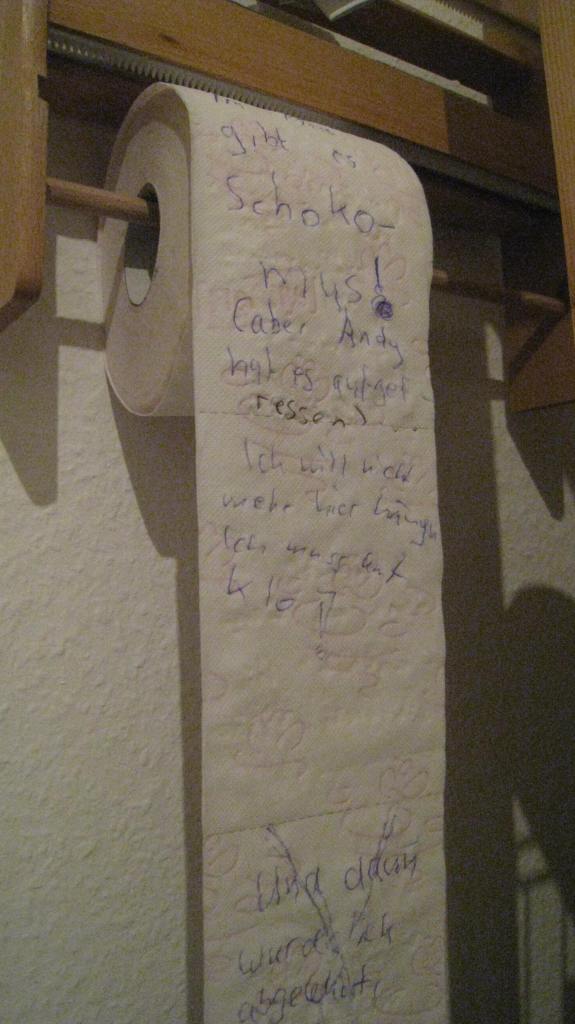 gibt es
Schoko-
mus!
(aber Andy
hat es aufgef
ressen)
Ich will nicht
mehr hier hängen
Ich muss auf
klo!
Und dann
wurde ich